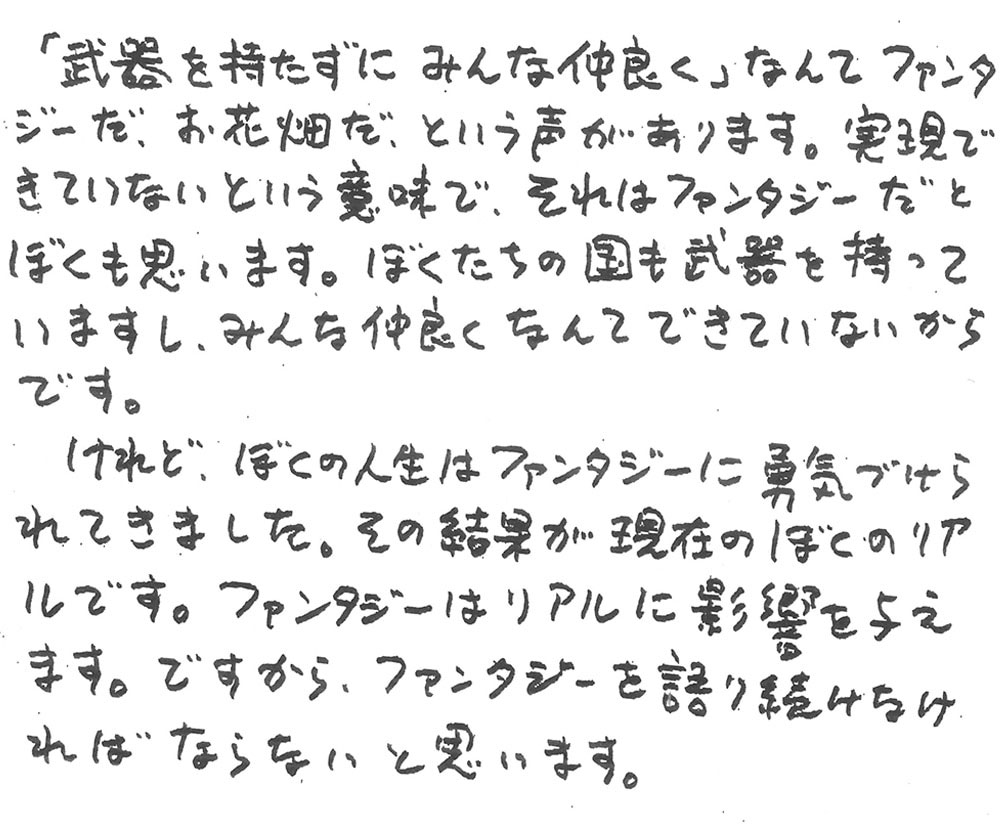 「武器を持たずに みんな仲良く」なんてファンタ
ジーだ、お花畑だ、という声があります。実現で
きていないという意味で、それはファンタジーだと
ぼくも思います。ぼくたちの国も武器を持って
いますし、みんな仲良くなんてできていないから
です。
けれど、ぼくの人生はファンタジーに勇気づけら
れてきました。その結果が現在のぼくのリア
ルです。ファンタジーはリアルに影響を与え
ます。ですから、ファンタジーを語り続けなけ
ればならないと思います。